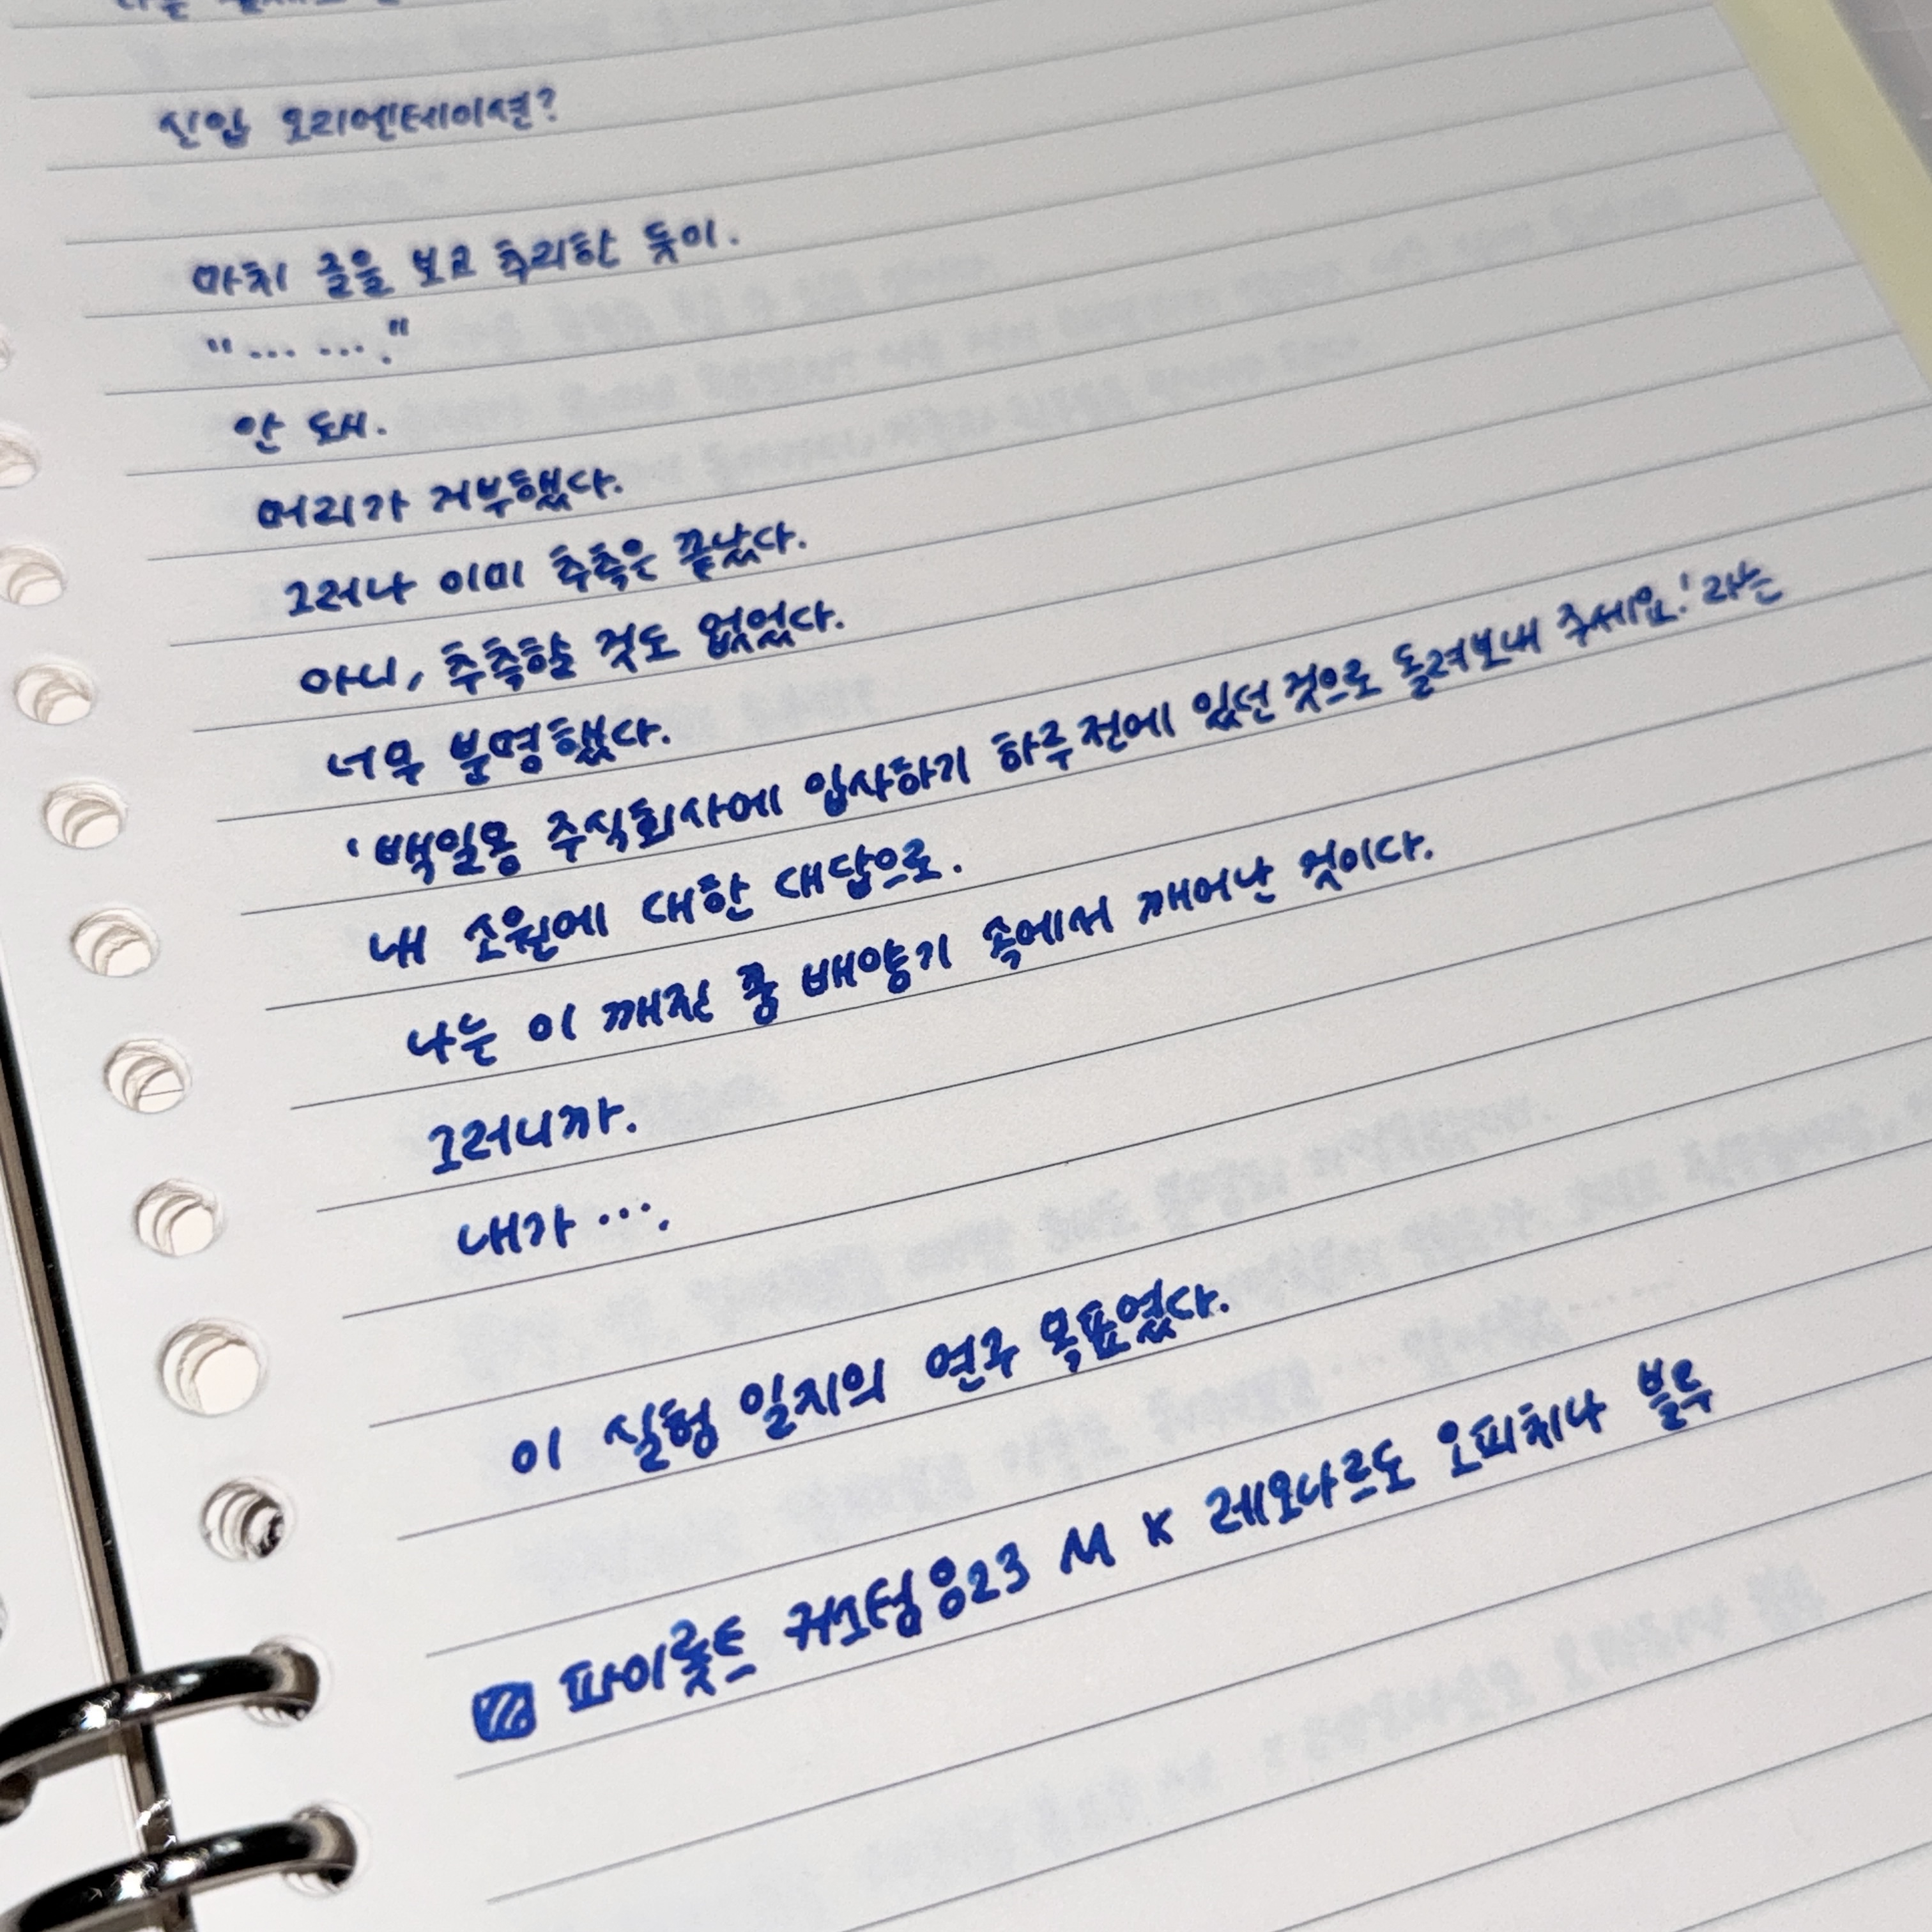 신입 오리엔테이션?
마치 글을 보고 추리한 듯이.
"… …."
안 돼.
머리가 거부했다.
그러나 이미 추측은 끝났다.
아니, 추측할 것도 없었다.
너무 분명했다.
'백일몽 주식회사에 입사하기 하루 전에 있던 것으로 돌려보내 주세요.'라는
내 소원에 대한 대답으로.
나는 이 깨진 종 배양기 속에서 깨어난 것이다.
그러니까.
내가 ….
이 실험 일지의 연구 목표였다.
파이롯트 커스텀 743 M X 레오나르도 오피치나 블루